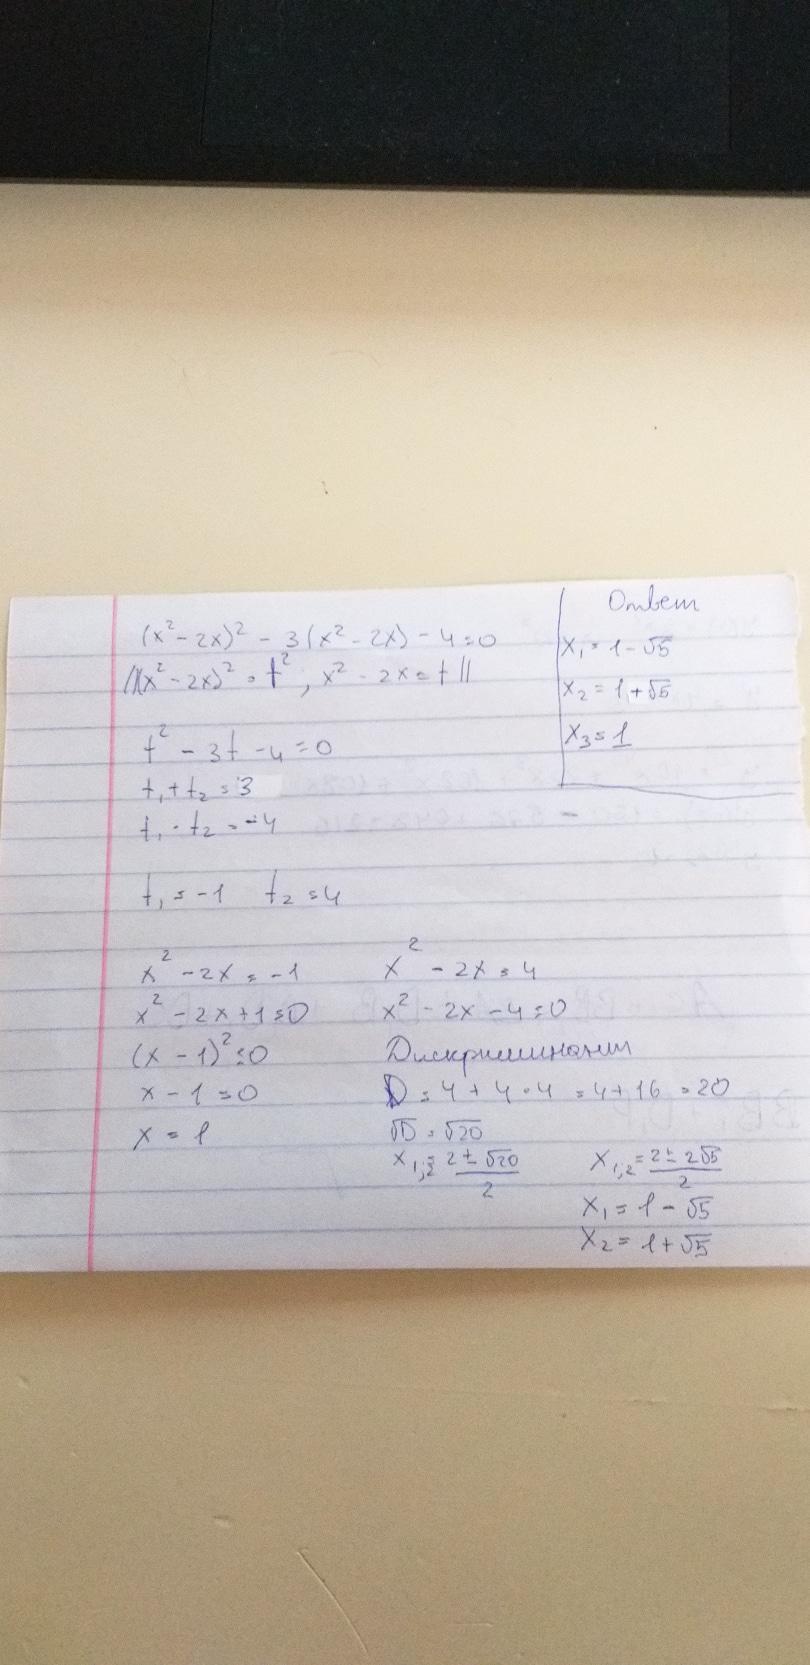 (x² - 2x)² - 3(x² - 2x) - 4 = 0
||(x² - 2x)² = t², x² - 2x = t||
t² - 3t - 4 = 0
t₁ + t₂ = 3
t₁ · t₂ = -4
t₁ = -1 t₂ = 4
x² - 2x = -1
x² - 2x + 1 = 0
(x - 1)² = 0
x - 1 = 0
x = 1
x² - 2x = 4
x² - 2x - 4 = 0
Дискриминант
D = 4 + 4 · 4 = 4 + 16 = 20
√D = √20
x₁,₂ = 2 ± √20 / 2
x₁,₂ = 2 ± 2√5 / 2
x₁ = 1 - √5
x₂ = 1 + √5
Ответ
x₁ = 1 - √5
x₂ = 1 + √5
x₃ = 1